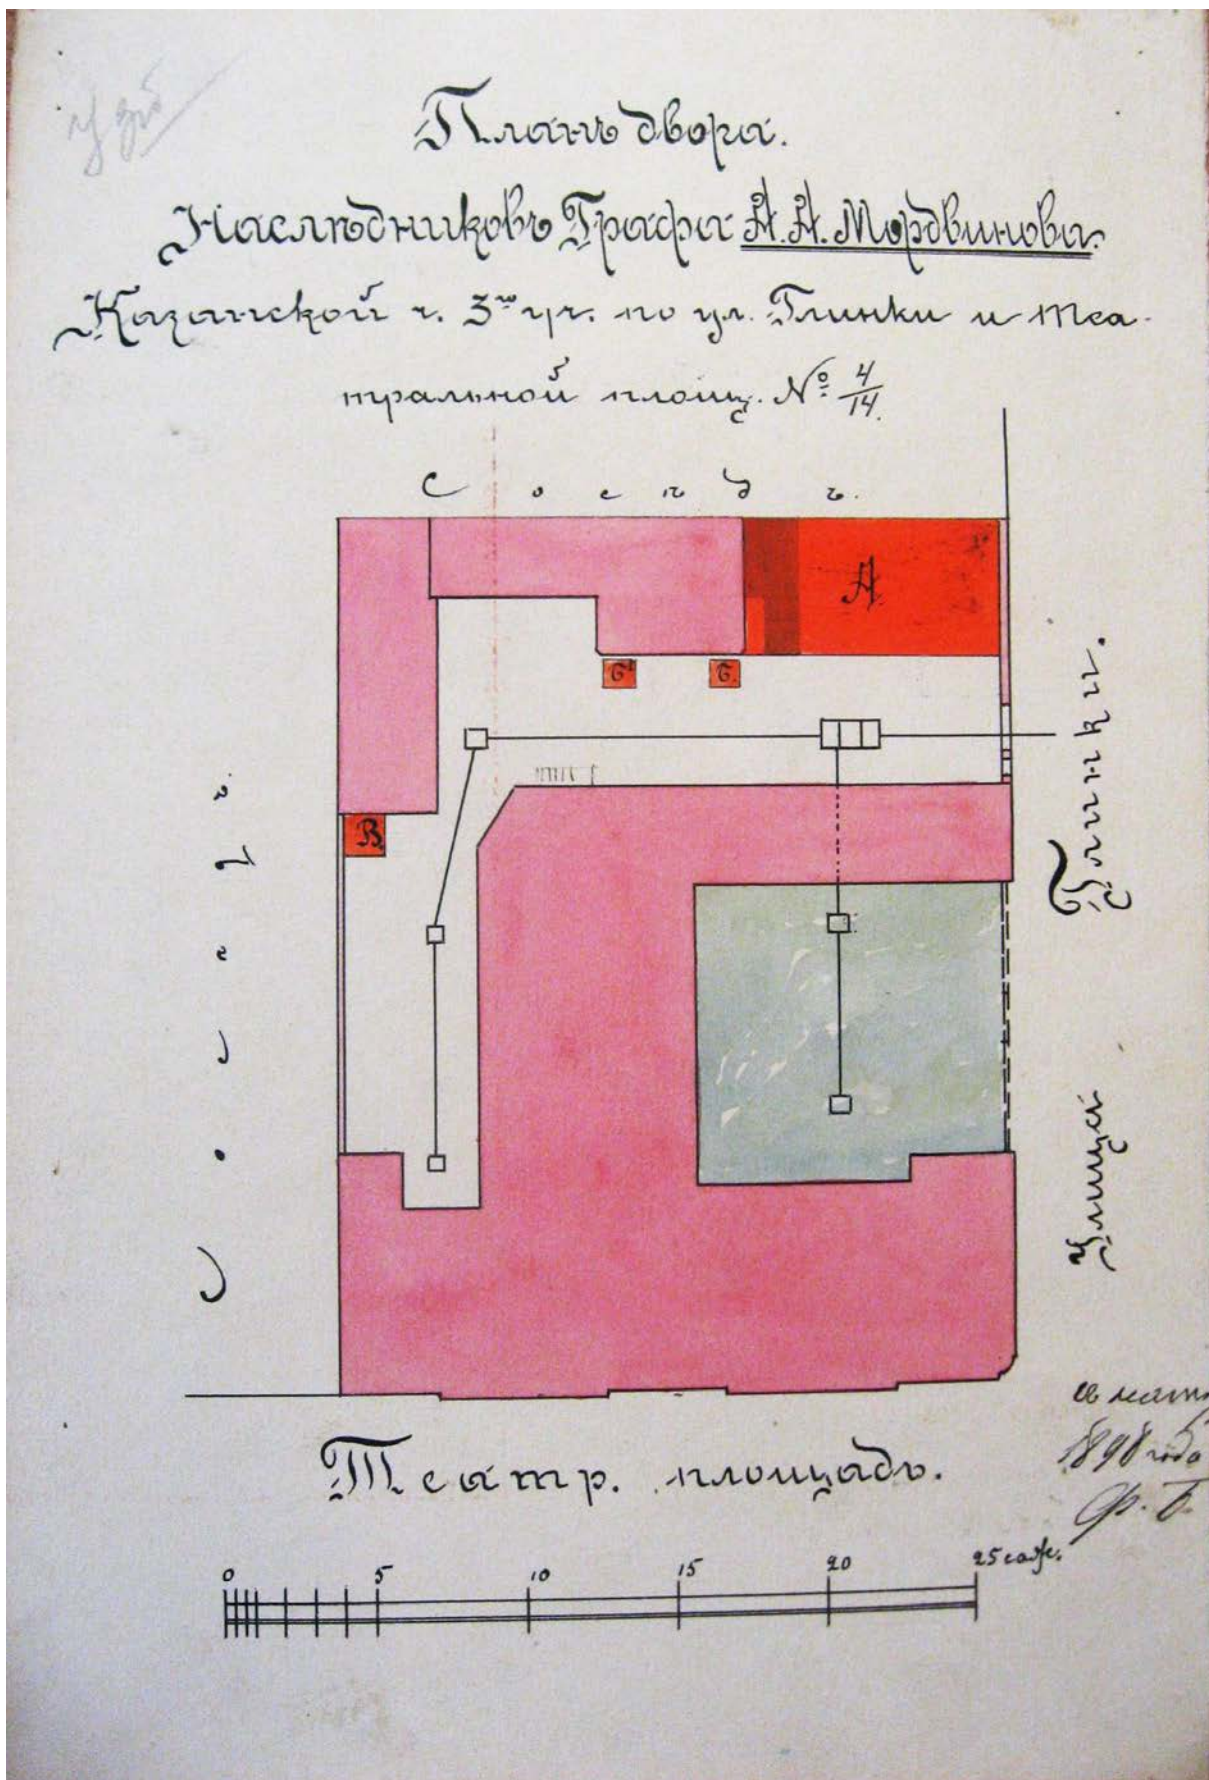 Планъ двора.
Наслѣдниковъ Графа А. А. Мордвинова.
Казанской ч. 3го уч. по ул. Глинки и Теа-
тральной площ. № 4/14
Сосѣдъ.
А
Б1
Б.
В.
Сосѣдъ.
Улица Глинки.
Театр. площадь.
1898 года
Ф. Б.
0 5 10 15 20 25 саж.